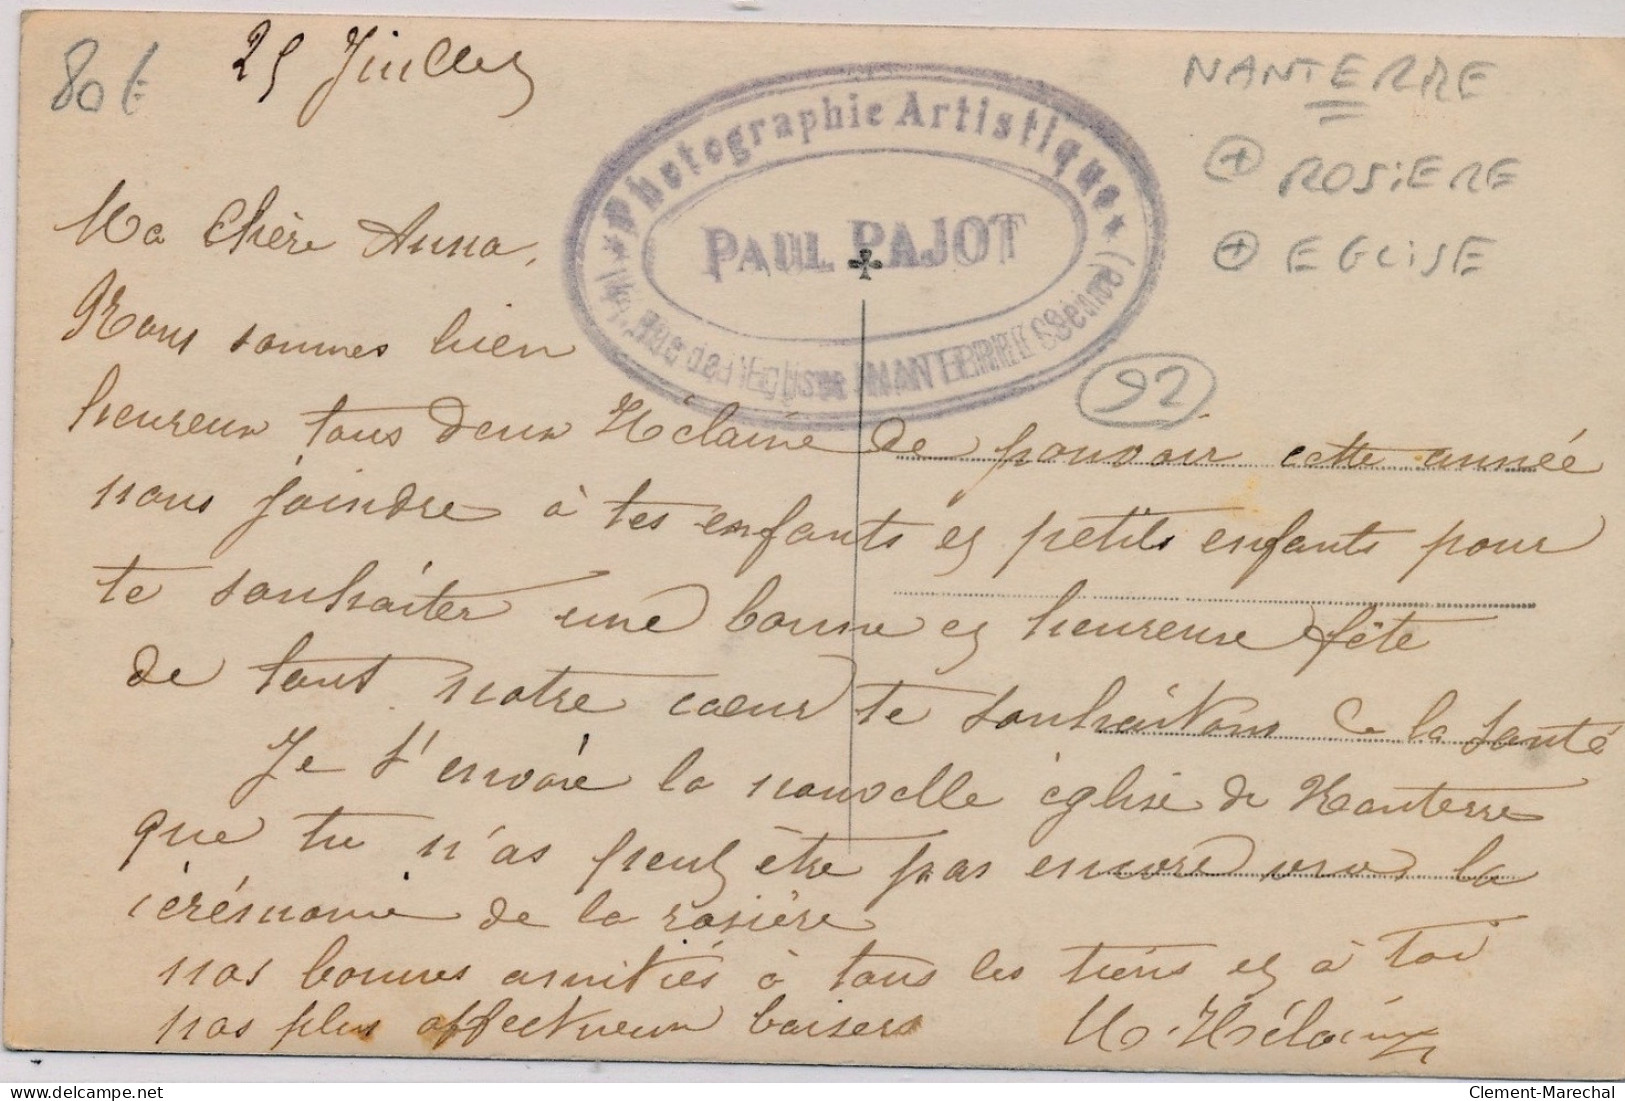 80 €
25 Juillet
NANTERRE
+ ROSIERE
+ EGLISE
92
Photographie Artistique
PAUL PAJOT
Rue de l'Eglise NANTERRE (Seine)
Ma Chère Anna,
Nous sommes bien
heureux tous deux Hélaine de pouvoir cette année
nous joindre à tes enfants et petits enfants pour
te souhaiter une bonne et heureuse fête
de tout notre cœur te souhaitons de la santé
Je t'envoie la nouvelle église de Nanterre
que tu n'as peut être pas encore vue la
cérémonie de la rosière
nos bonnes amitiés à tous les tiens et à toi
nos plus affectueux baisers
Clement-Marechal